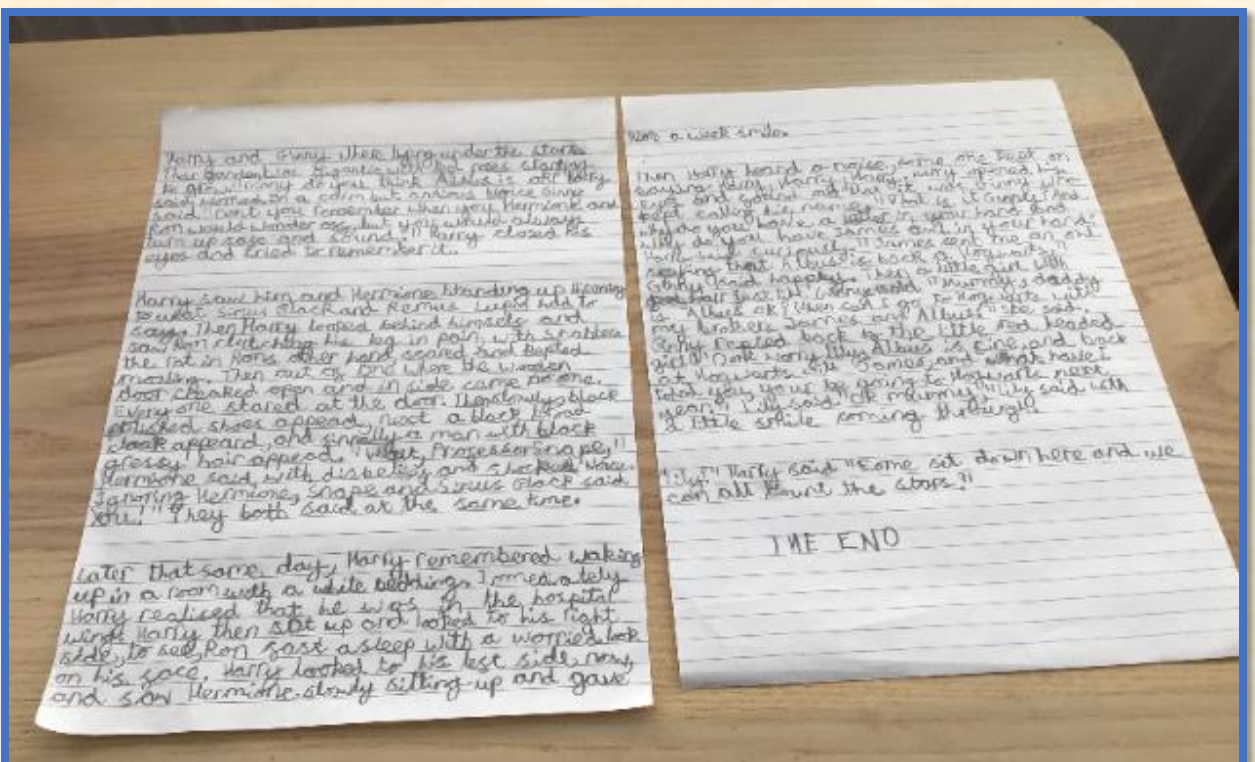 Harry and Ginny lying under the stars
Their garden was gigantic with red roses starting
to grow. "Ginny do you think Albus is ok" Harry
said in a calm but anxious voice Ginny
said "Don't you remember when you Hermione and
Ron would wonder off but you would always
turn up safe and sound!" Harry closed his
eyes and tried to remember it.
Harry saw him and Hermione standing up
to what Sirus Black and Remus had to
say. Then Harry looked behind himself and
saw Ron clutching his leg in pain with scabbers
the rat in Rons other hand, scared and
Then out of the wooden
door creaked open and in side came no one.
Every one stared at the door. Then slowly black
polished shoes appead, next a black
cloak appeard, and finnally a man with black
gressy hair appead. "What, Professor Snape,"
Hermione said, with disbelief and voice.
Ignoring Hermione, Snape and Sirus Black said
"You!" They both said at the same time.
Later that same day, Harry remembered waking
up in a room with a white beddings. Immediately
Harry realised that he was in the hospital
wing. Harry then sat up and looked to his right
side, to see Ron fast asleep with a worried look
on his face. Harry looked to his left side now,
and saw Hermione slowly sitting up and gave
him a weak smile.
Then Harry heard a noise, some one kept on
saying Harry, Harry, Harry opened his
eyes and found out that it was Ginny who
kept calling his name. "What is it Ginny and
why do you have a letter in your hand and
why do you have James owl in your hand."
Harry said curiously. "James sent me an owl
saying that Albus is back a hogwarts"
Ginny said happely. Then a little girl with
red hair just like Ginny said "Mummy, daddy
is Albus ok? Then can I go to Hogwarts with
my brothers James and Albus" She said.
Ginny replied back to the little red headed
girl "Dont worry lily Albus is fine and back
at Hogwarts with James, and what have I
told you, your be going to Hogwarts next
year." Lily said "Ok mummy" Lily said with
a little smile coming through.
"Lily!" Harry said "Come sit down here and we
can all count the stars."
THE END